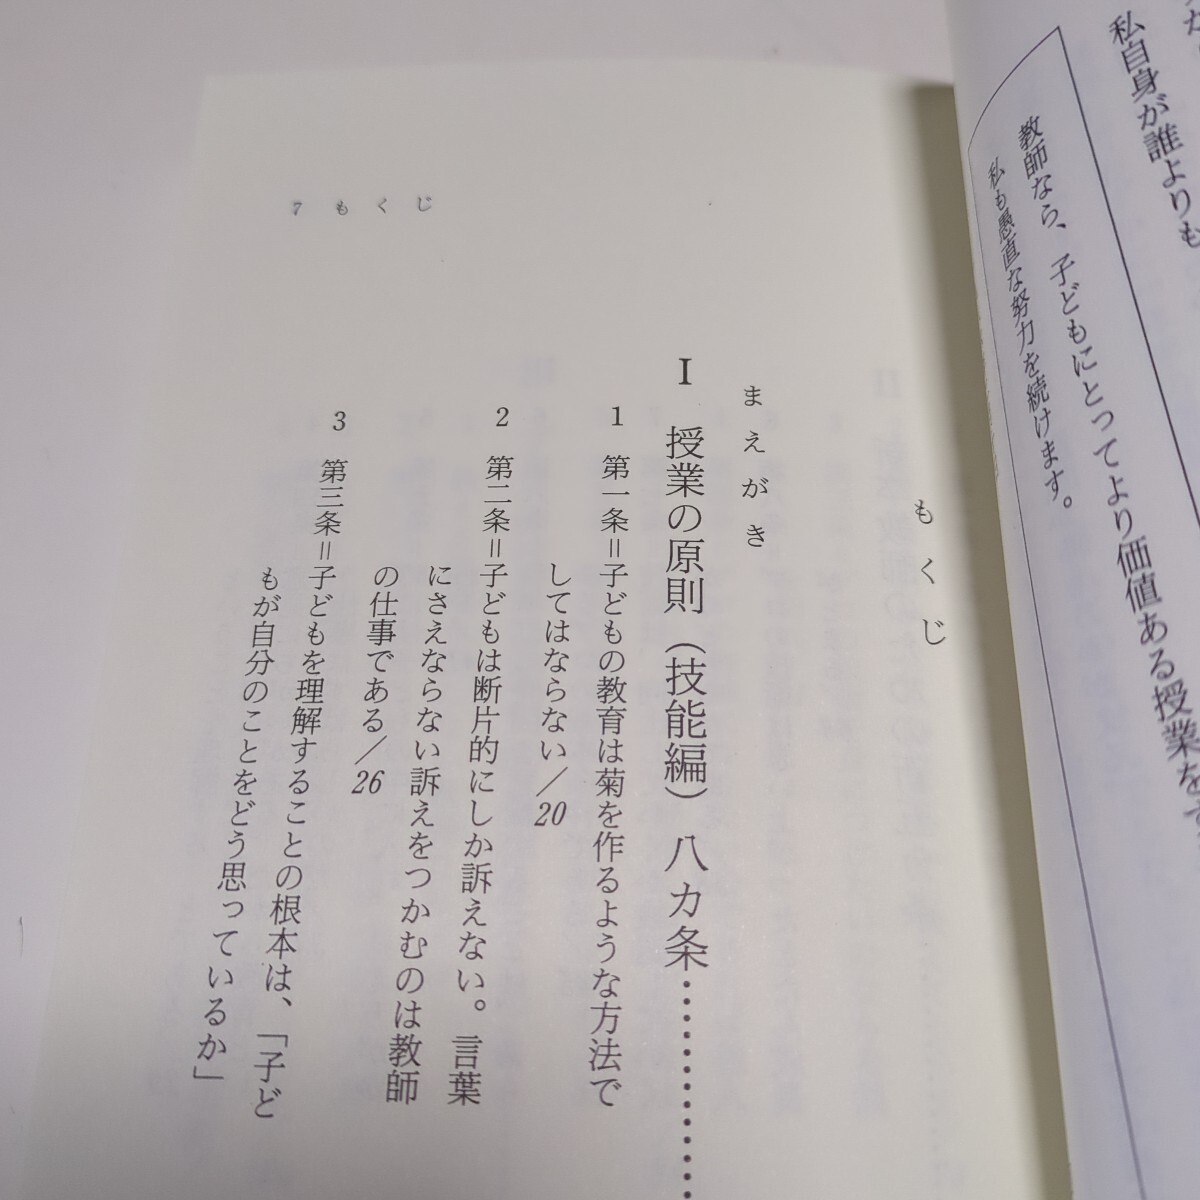 私自身が誰よりも
教師なら、子どもにとってより価値ある授業を
私も愚直な努力を続けます。
もくじ
まえがき
I 授業の原則（技能編）八カ条…………
1 第一条＝子どもの教育は菊を作るような方法で
してはならない／20
2 第二条＝子どもは断片的にしか訴えない。言葉
にさえならない訴えをつかむのは教師
の仕事である／26
3 第三条＝子どもを理解することの根本は、「子ど
もが自分のことをどう思っているか」
7 もくじ